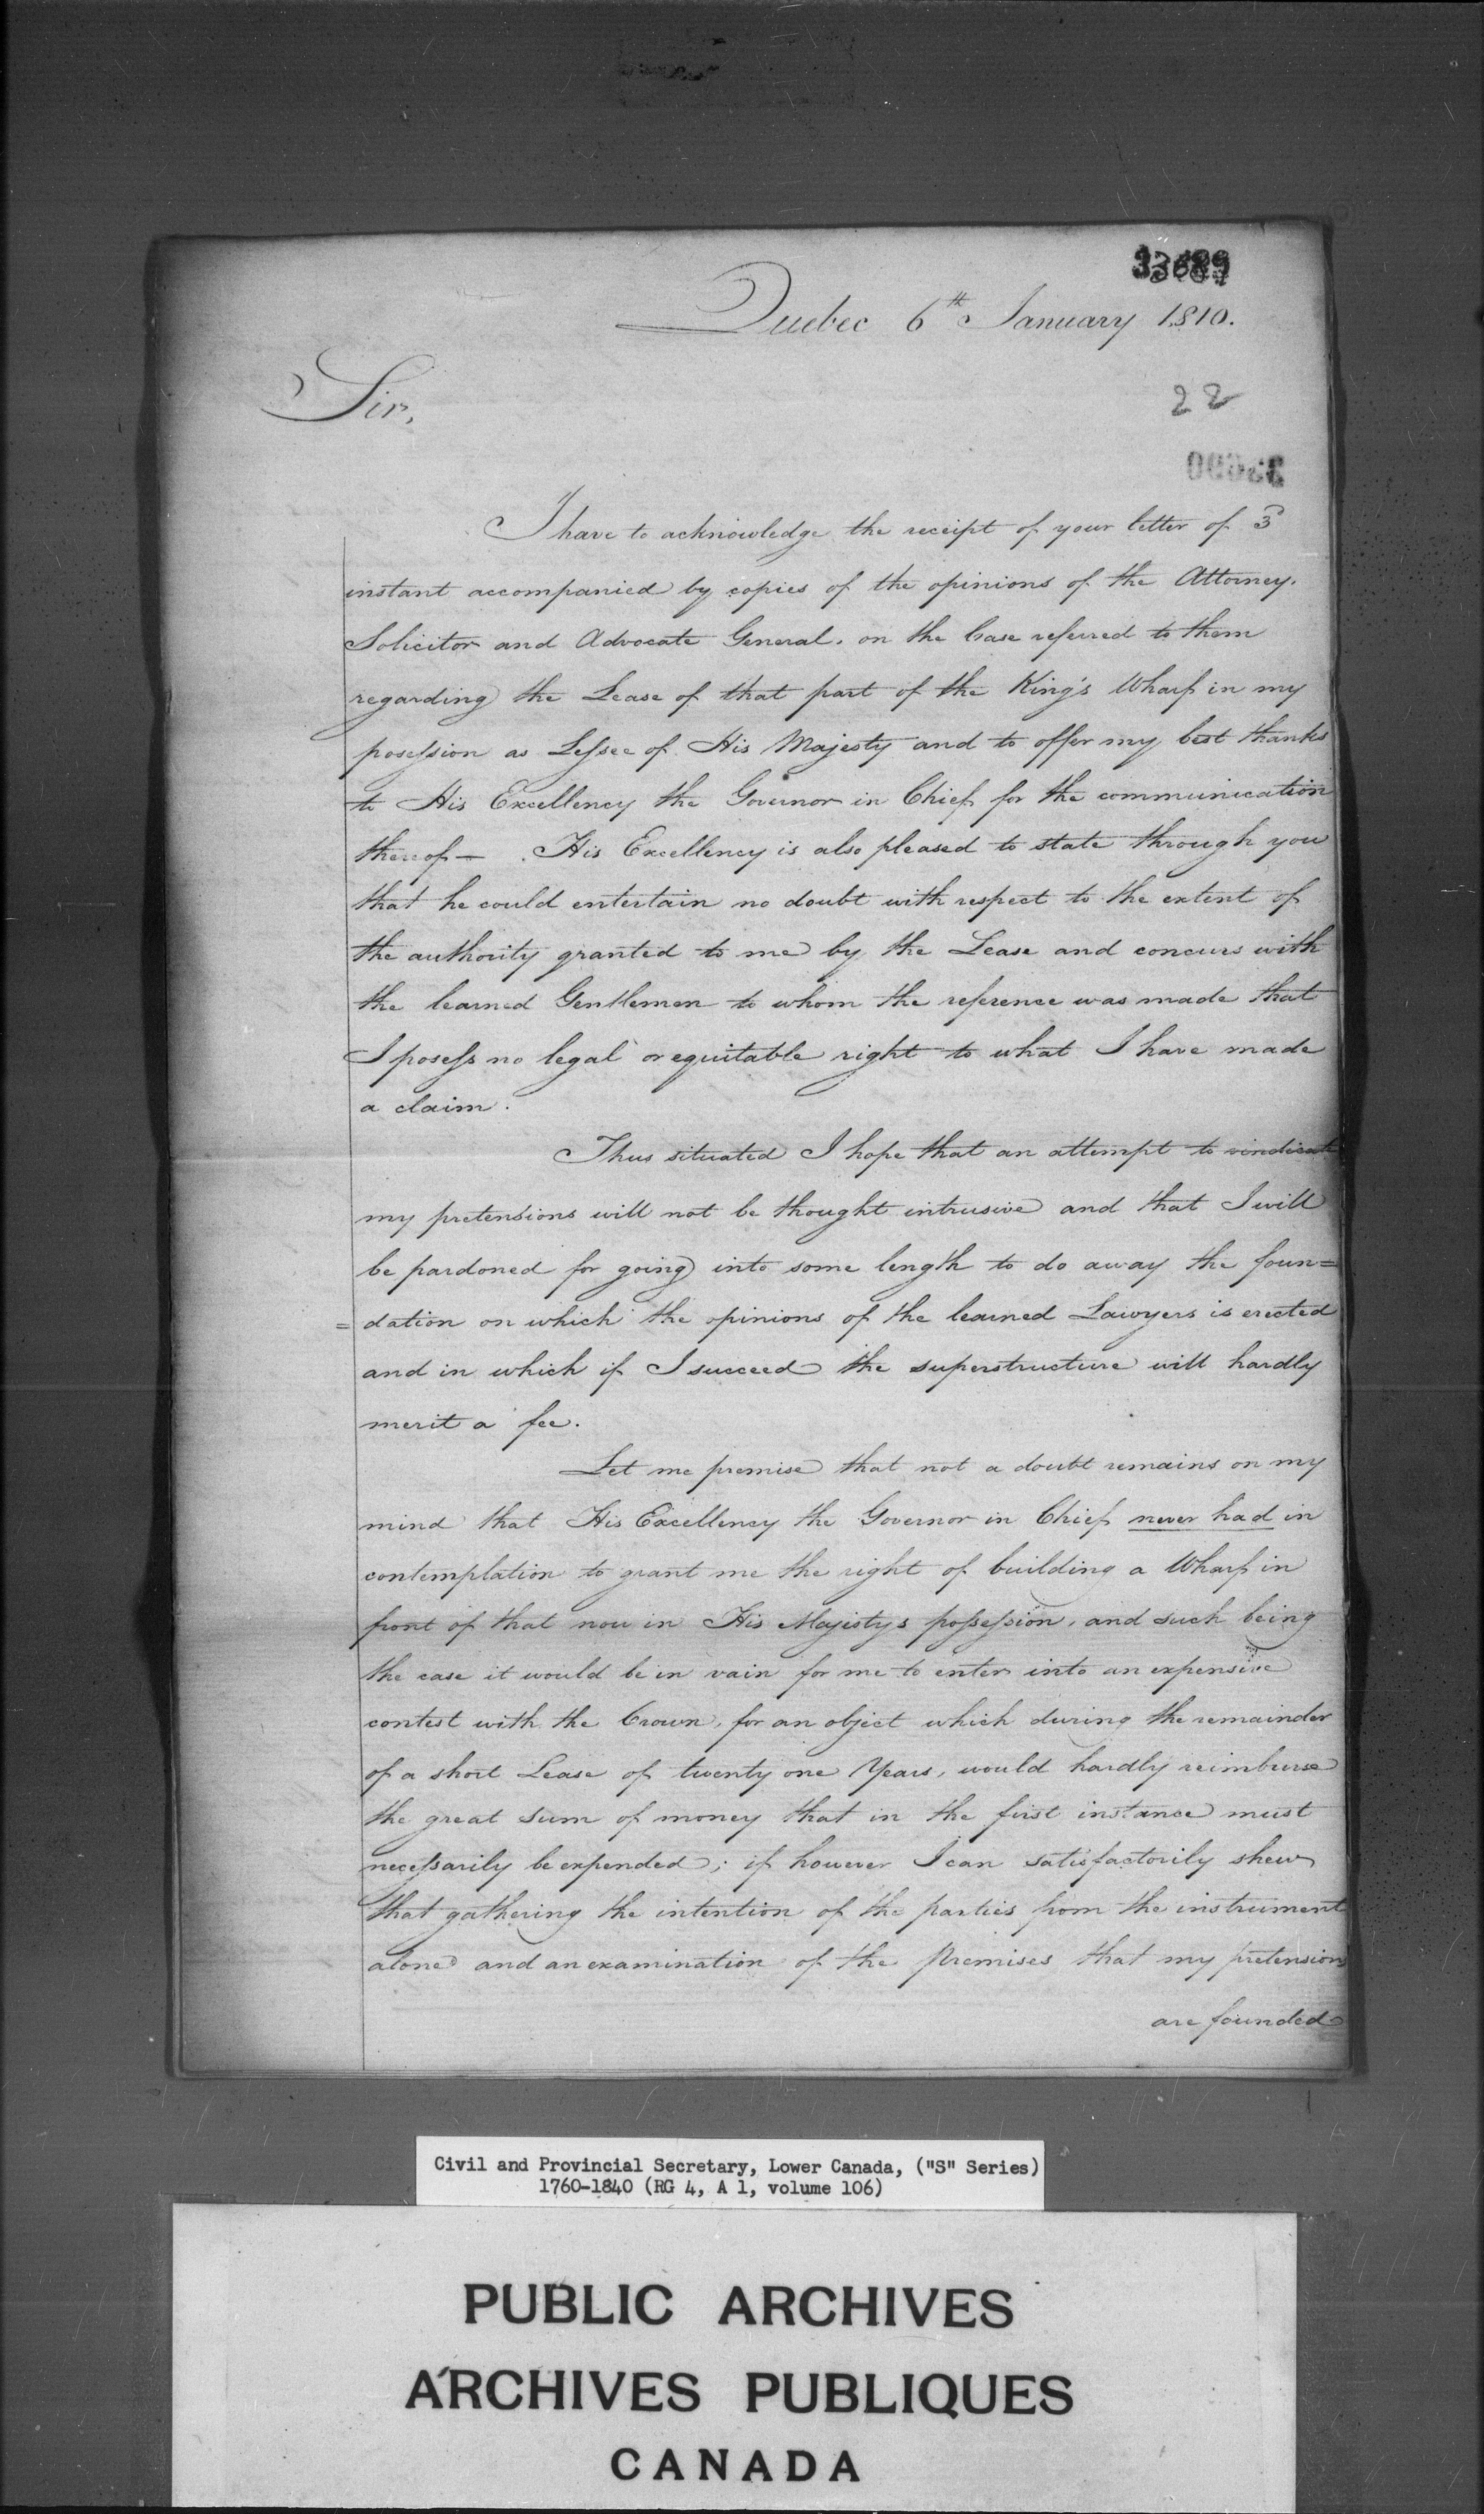 Quebec 6th January 1810.
Sir,
22
I have to acknowledge the receipt of your letter of 3
instant accompanied by copies of the opinions of the Attorney.
Solicitor and Advocate General. on the Case referred to them
regarding the Lease of that part of the King's Wharf in my
posession as Lessee of His Majesty and to offer my best thanks
to His Excellency the Governor in Chief for the communication
thereof — His Excellency is also pleased to state through you
that he could entertain no doubt with respect to the extent of
the authority granted to me by the Lease and concurs with
the learned Gentlemen to whom the reference was made that
I posess no legal or equitable right to what I have made
a claim.
Thus situated I hope that an attempt to vindicate
my pretensions will not be thought intrusive and that I will
be pardoned for going into some length to do away the foun=
=dation on which the opinions of the learned Lawyers is erected
and in which if I succeed the superstructure will hardly
merit a fee.
Let me premise that not a doubt remains on my
mind that His Excellency the Governor in Chief never had in
contemplation to grant me the right of building a Wharf in
front of that now in His Majestys possession, and such being
the case it would be in vain for me to enter into an expensive
contest with the Crown, for an object which during the remainder
of a short Lease of twenty one Years, would hardly reimburse
the great sum of money that in the first instance must
necessarily be expended; if however I can satisfactorily shew
that gathering the intention of the parties from the instrument
alone and an examination of the Premises that my pretensions
are founded
Civil and Provincial Secretary, Lower Canada, ("S" Series)
1760-1840 (RG 4, A 1, volume 106)
PUBLIC ARCHIVES
ARCHIVES PUBLIQUES
CANADA